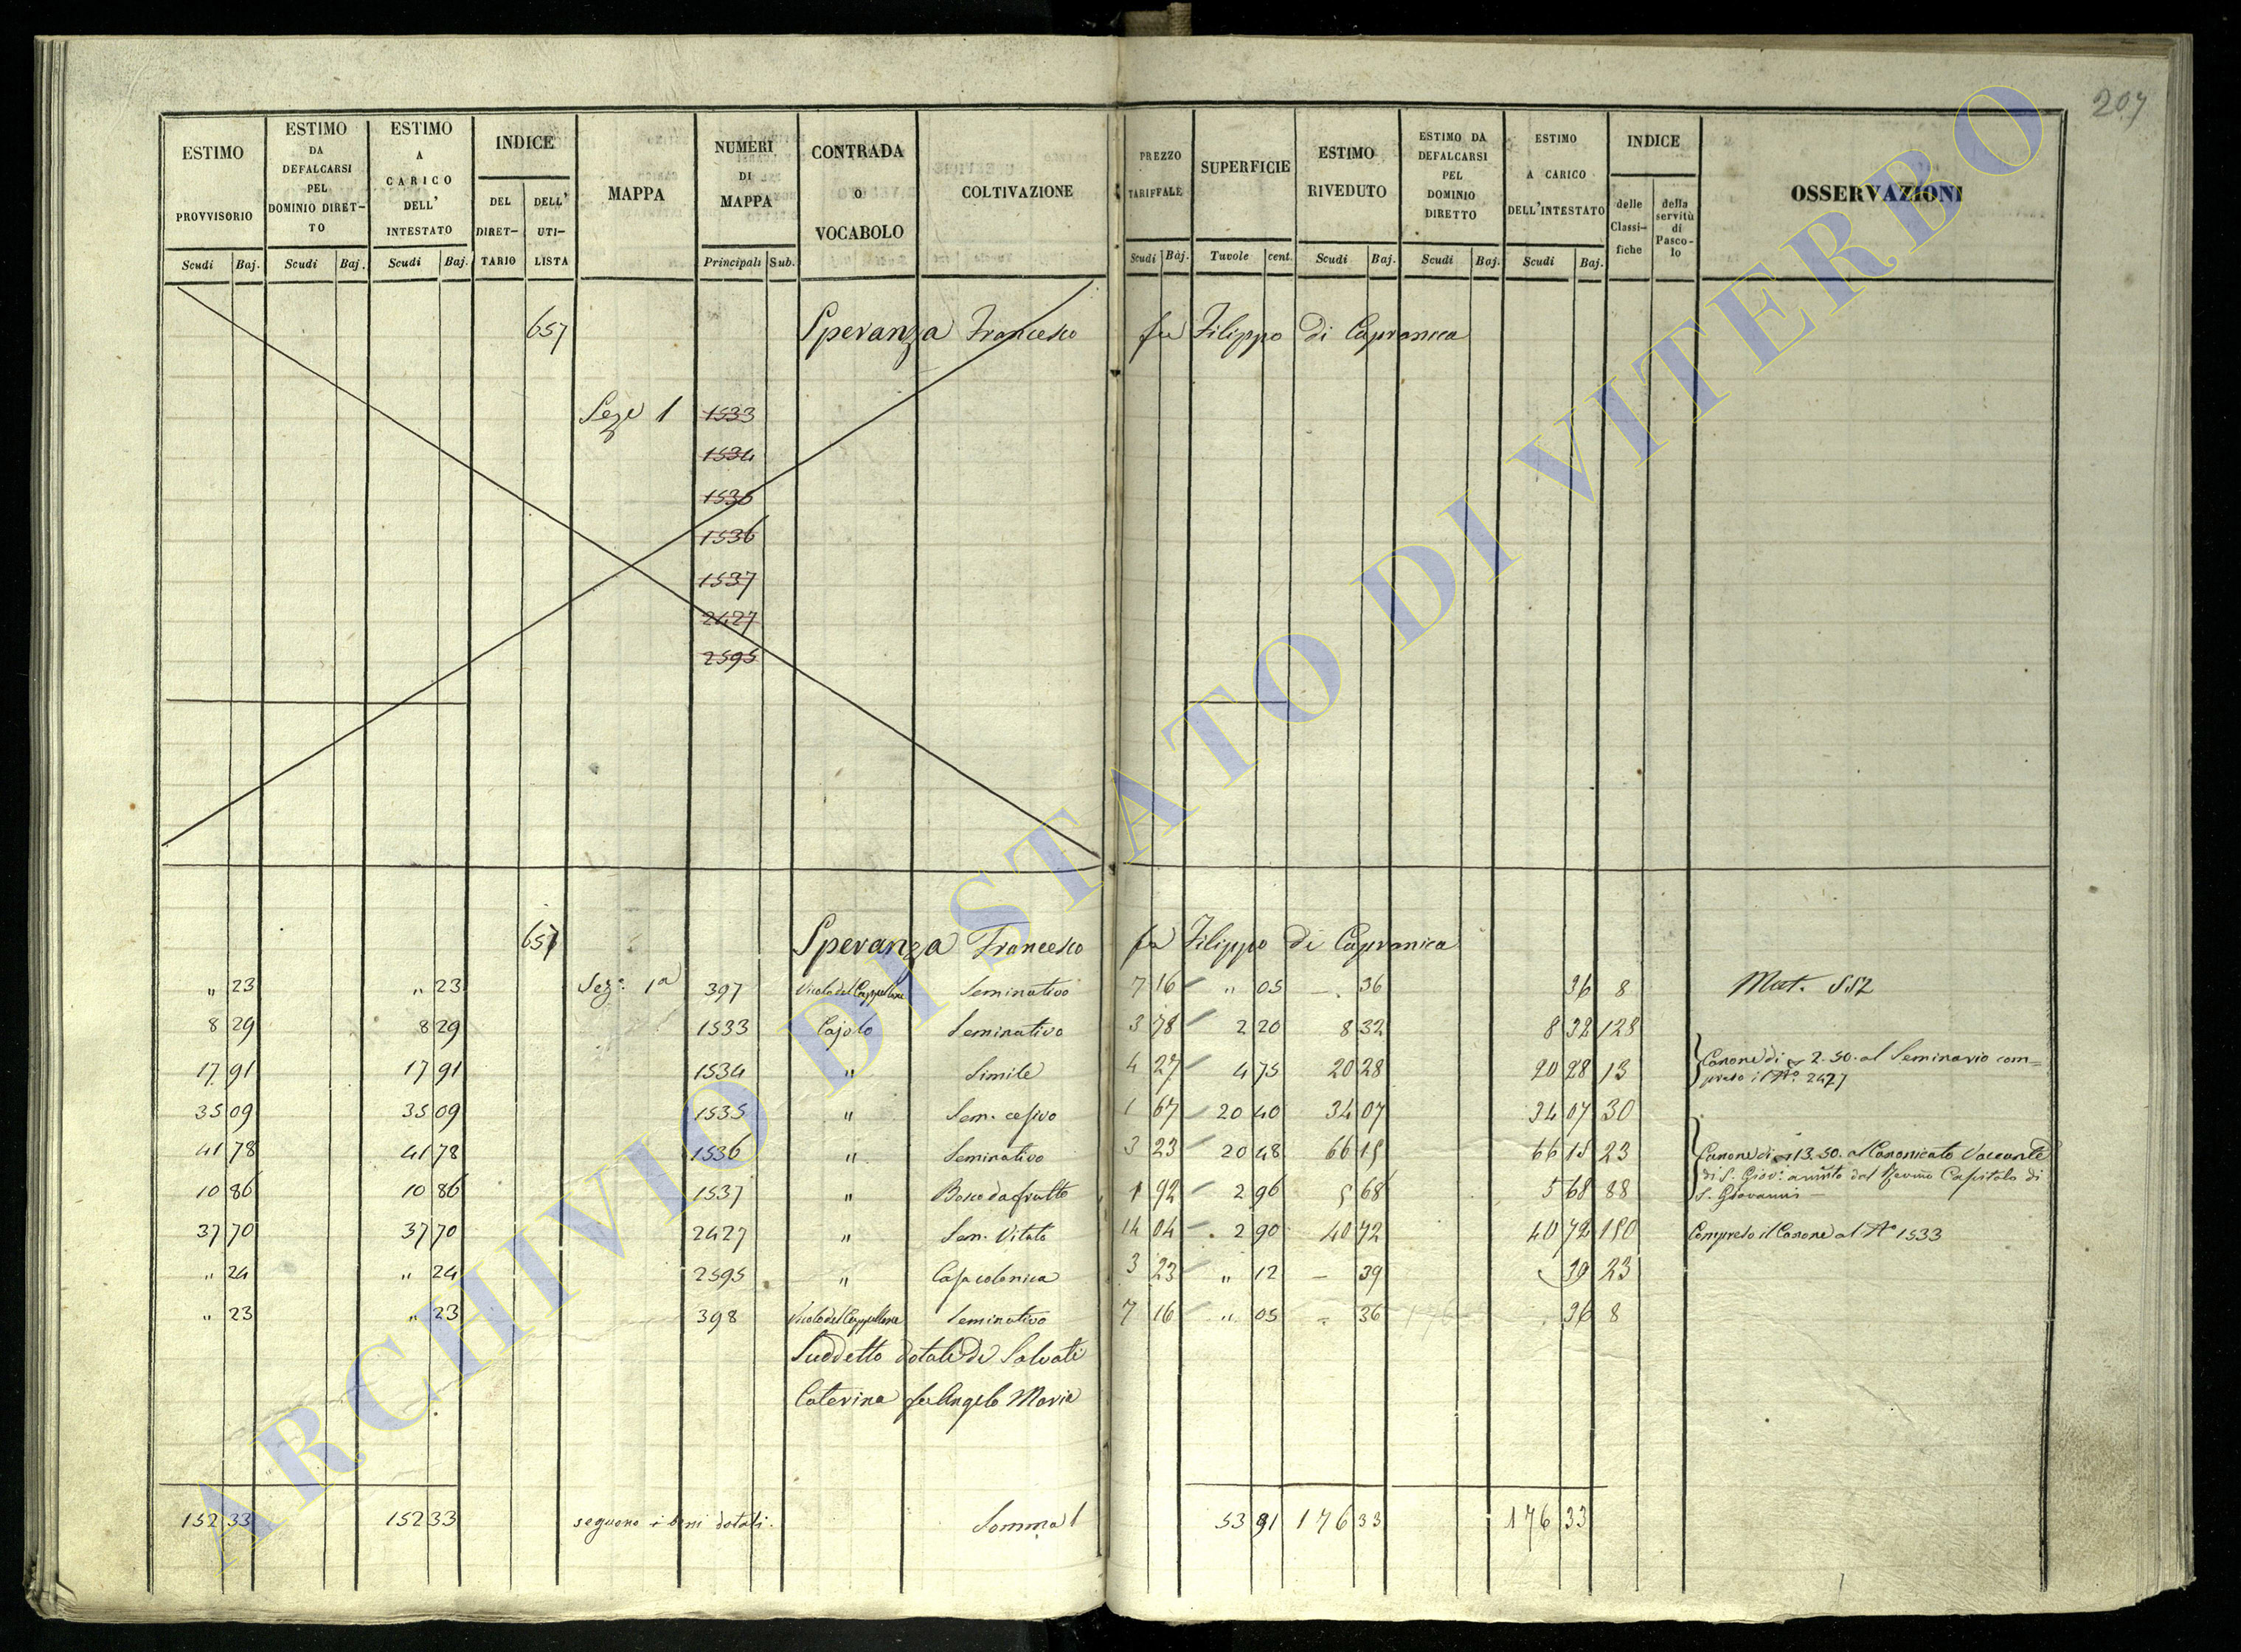 207
ESTIMO PROVVISORIO Scudi Baj.
ESTIMO DA DEFALCARSI PEL DOMINIO DIRET- TO Scudi Baj.
ESTIMO A CARICO DELL' INTESTATO Scudi Baj.
INDICE DEL DIRET- TARIO DELL' UTI- LISTA
MAPPA
NUMERI DI MAPPA Principali Sub.
CONTRADA O VOCABOLO
COLTIVAZIONE
PREZZO TARIFFALE Scudi Baj.
SUPERFICIE Tavole cent.
ESTIMO RIVEDUTO Scudi Baj.
ESTIMO DA DEFALCARSI PEL DOMINIO DIRETTO Scudi Baj.
ESTIMO A CARICO DELL'INTESTATO Scudi Baj.
INDICE delle Classi- fiche della servitù di Pasco- lo
OSSERVAZIONI
657 Speranza Francesco fu Filippo di Capranica
Seze 1 1533
1534
1536
1536
1537
2427
2595
657 Speranza Francesco fu Filippo di Capranica
" 23 " 23 Sez: 1a 397 Vicolo del Cappellone Seminativo 7 16 " 05 - 36 36 8 Mut. 552
8 29 8 29 1533 Cajolo Seminativo 3 78 2 20 8 32 8 32 128
17 91 17 91 1534 " Simile 4 27 4 75 20 28 20 28 13 Canone di 2.50. al Seminario com=
preso il No. 2427
35 09 35 09 1535 " Sem. cesivo 1 67 20 40 34 07 34 07 30
41 78 41 78 1536 " Seminativo 3 23 20 48 66 15 66 15 23 Canone di 13.50. al Canonicato Vaccante
10 86 10 86 1537 " Bosco da frutto 1 92 2 96 5 68 5 68 88 di S. Giov: dal Capitolo di
S. Giovanni
37 70 37 70 2427 " Sem. Vitato 14 04 2 90 40 72 40 72 150 Compreso il Canone al No 1533
" 24 " 24 2595 " Casa colonica 3 23 " 12 - 39 39 23
" 23 " 23 398 Vicolo del Cappellone Seminativo 7 16 " 05 - 36 36 8
Suddetto dotale di Salvati
Caterina fu Angelo Maria
152 33 152 33 seguono i beni dotali. Somma 53 91 176 33 176 33
ARCHIVIO DI STATO DI VITERBO